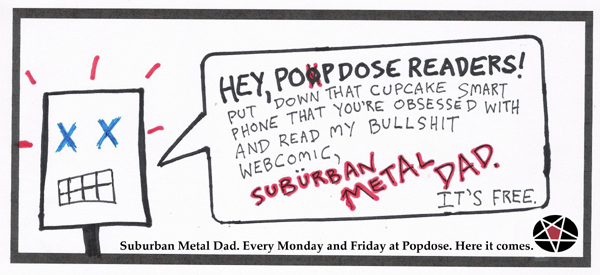 HEY, POPDOSE READERS!
PUT DOWN THAT CUPCAKE SMART
PHONE THAT YOU'RE OBSESSED WITH
AND READ MY BULLSHIT
WEBCOMIC,
SUBÜRBAN METAL DAD.
IT'S FREE.
Suburban Metal Dad. Every Monday and Friday at Popdose. Here it comes.